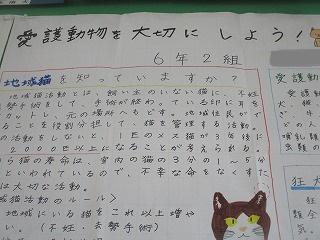 愛護動物を大切にしよう!
6年2組
地域猫を知っていますか?
地域猫活動とは、飼い主のいない猫に、不妊
勢手術をして、手術が終わっている印に耳を
カットし、元の場所へもどす。地域住民がで
ることを役割分担して、猫を管理する活動。
の活動をしないと、1匹のメス猫が3年後に
2000匹以上になることが考えられる。
ら猫の寿命は、室内の猫の3分の1~5分
といわれているので、不幸な命をなくすた
は大切な活動。
域猫活動のルール>
地域にいる猫をこれ以上増や
い。(不妊、去勢手術)
愛護動
愛護
犬、
ざ、
哺乳
虫類の
狂犬
狂
類全
気